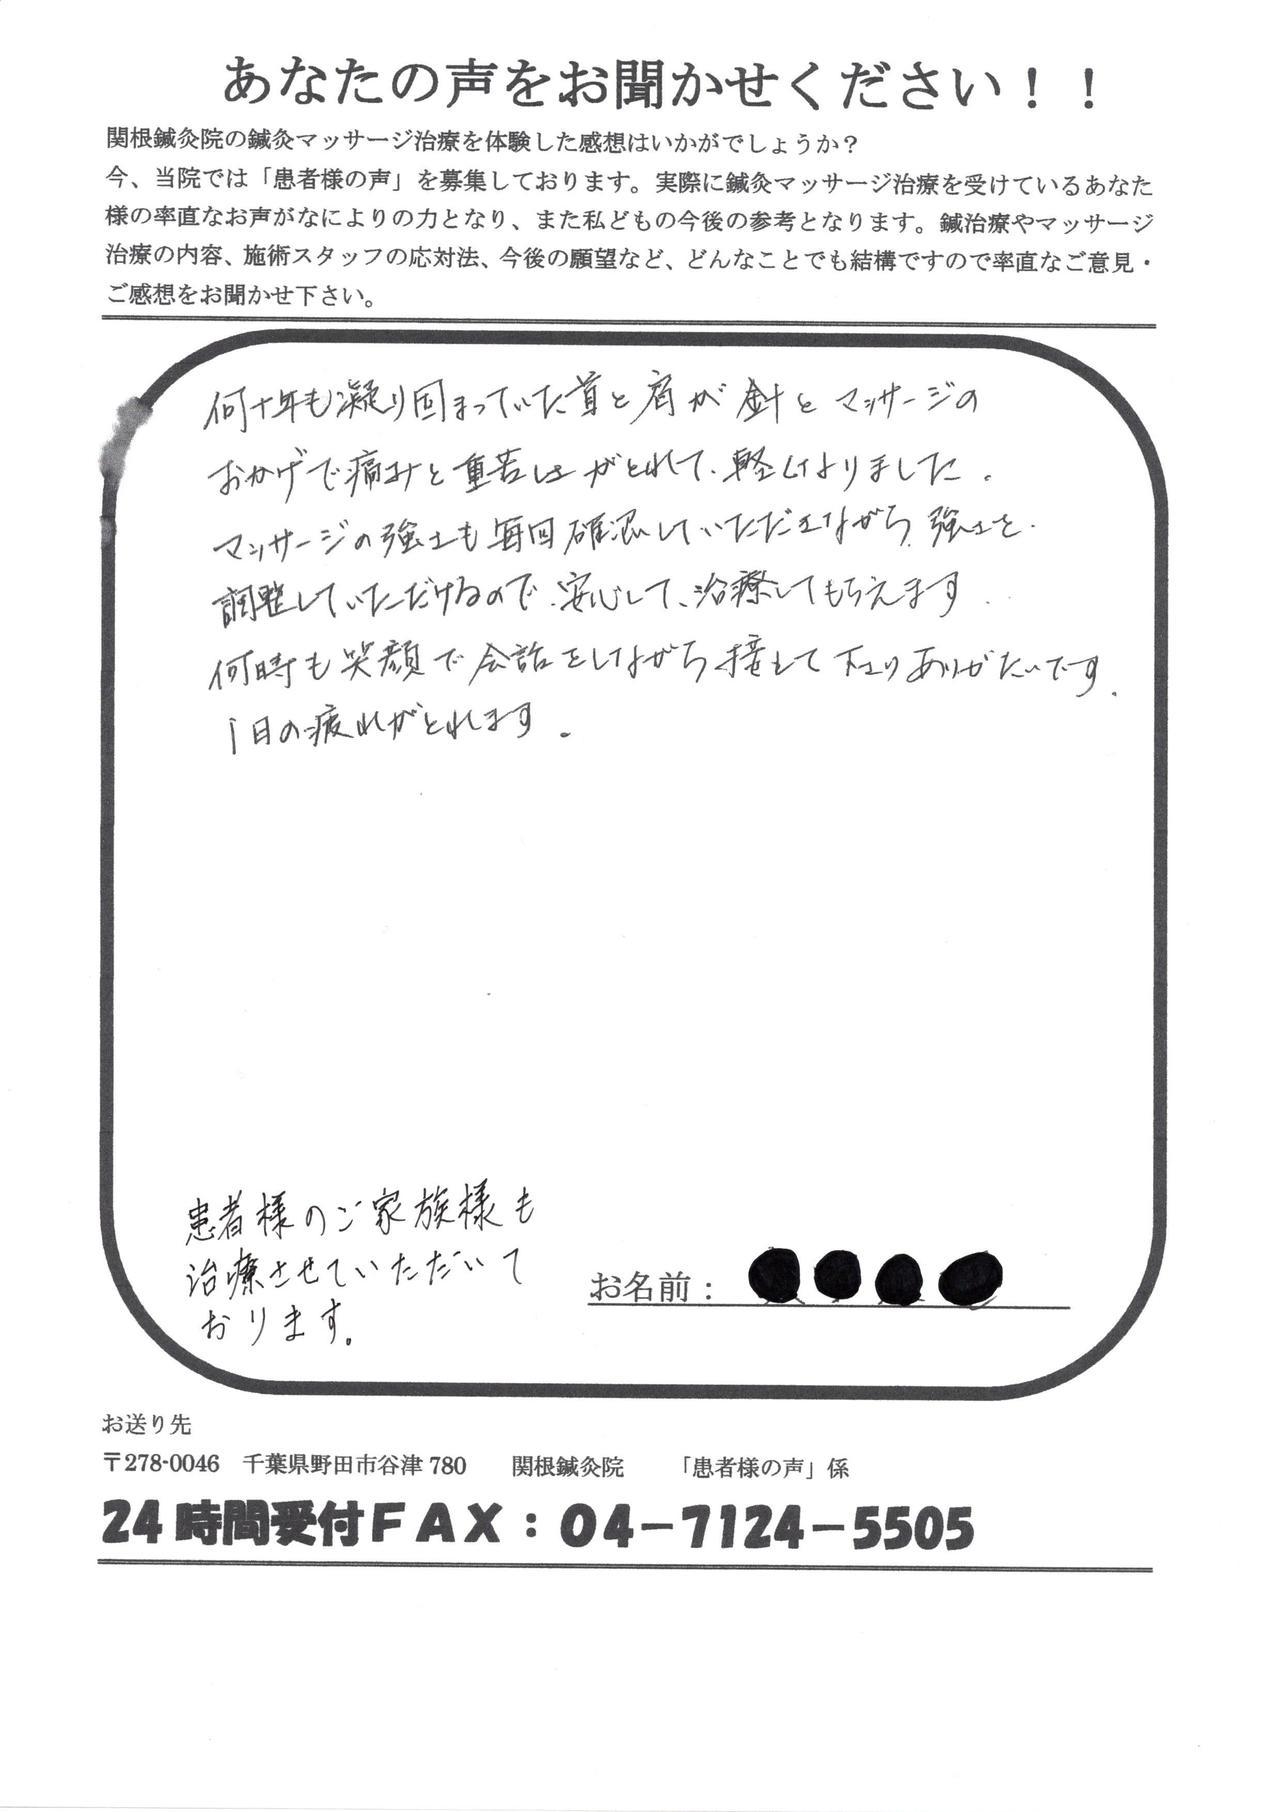 あなたの声をお聞かせください！！
関根鍼灸院の鍼灸マッサージ治療を体験した感想はいかがでしょうか？
今、当院では「患者様の声」を募集しております。実際に鍼灸マッサージ治療を受けているあなた
様の率直なお声がなによりの力となり、また私どもの今後の参考となります。鍼治療やマッサージ
治療の内容、施術スタッフの応対法、今後の願望など、どんなことでも結構ですので率直なご意見・
ご感想をお聞かせ下さい。
何十年も凝り回まっていた首と肩が針とマッサージの
おかげで痛みと重苦しさがとれて、軽くなりました。
マッサージの強さも毎回確認していただきながら、強さを
調整していただけるので、安心して、治療してもらえます。
何時も笑顔で会話をしながら接して下さりありがたいです。
1日の疲れがとれます。
患者様のご家族様も
治療させていただいて
おります。
お名前：
お送り先
〒278-0046　千葉県野田市谷津 780　　関根鍼灸院　　「患者様の声」係
24時間受付ＦＡＸ：04−7124−5505